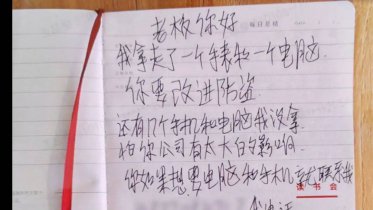 每日总结
老板你好
我拿走了一个手表和一个电脑
你要改进防盗
还有几个手机和电脑我没拿
怕你公司有太大白的影响.
你如果想要电脑和手机就联系我
读书会